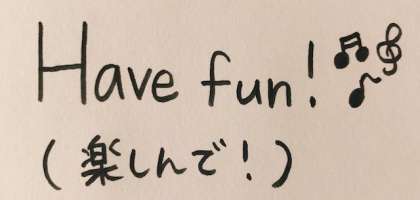 Have fun!
(楽しんで!)